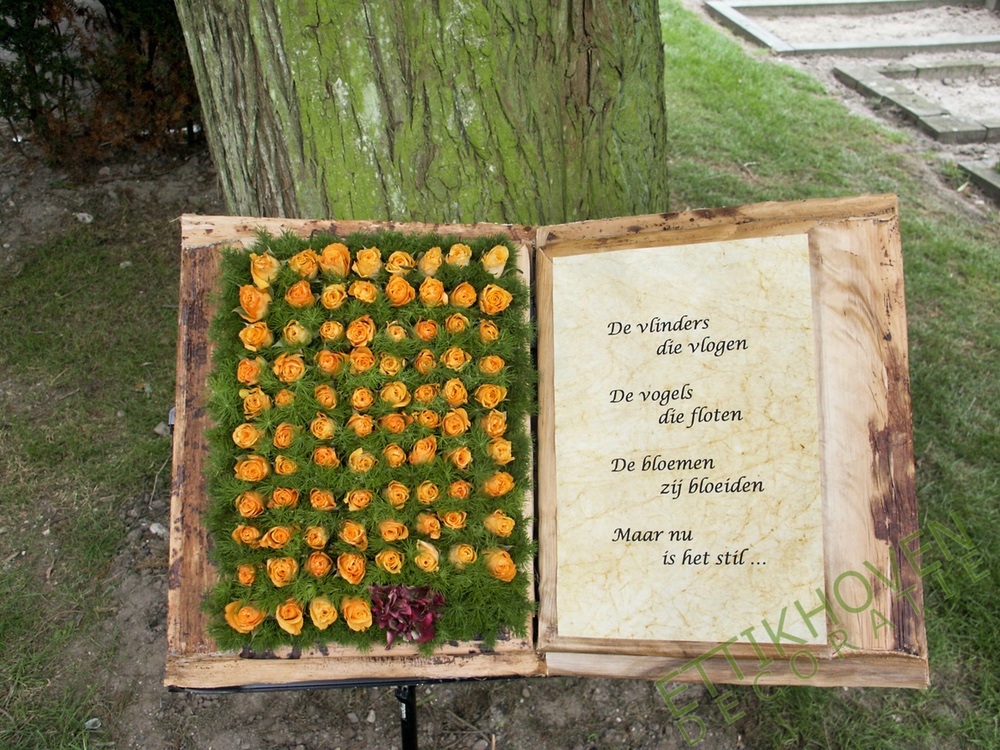 De vlinders
die vlogen
De vogels
die floten
De bloemen
zij bloeiden
Maar nu
is het stil ...
ETTIKHOVEN
DECORATIE